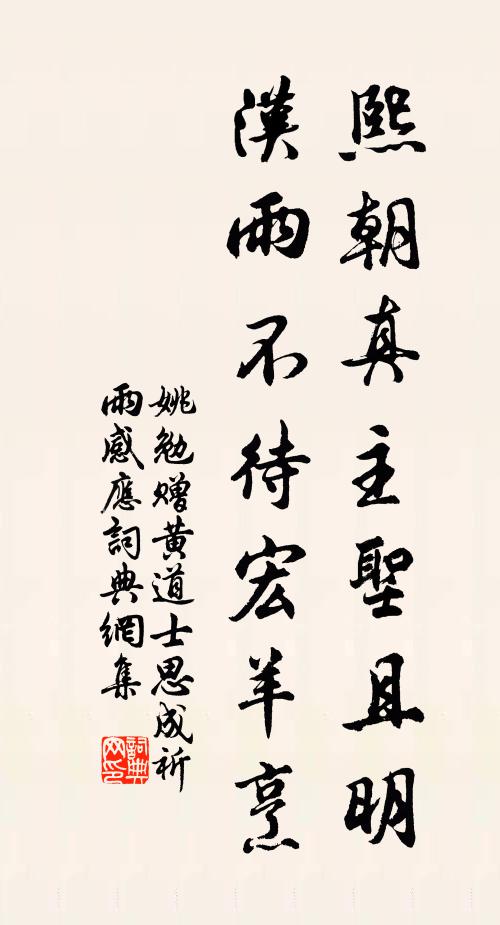 熙朝真主聖且明
漢雨不待宏羊烹
姚勉赠黄道士思成祈
雨感應詞典網集
詞典
网印